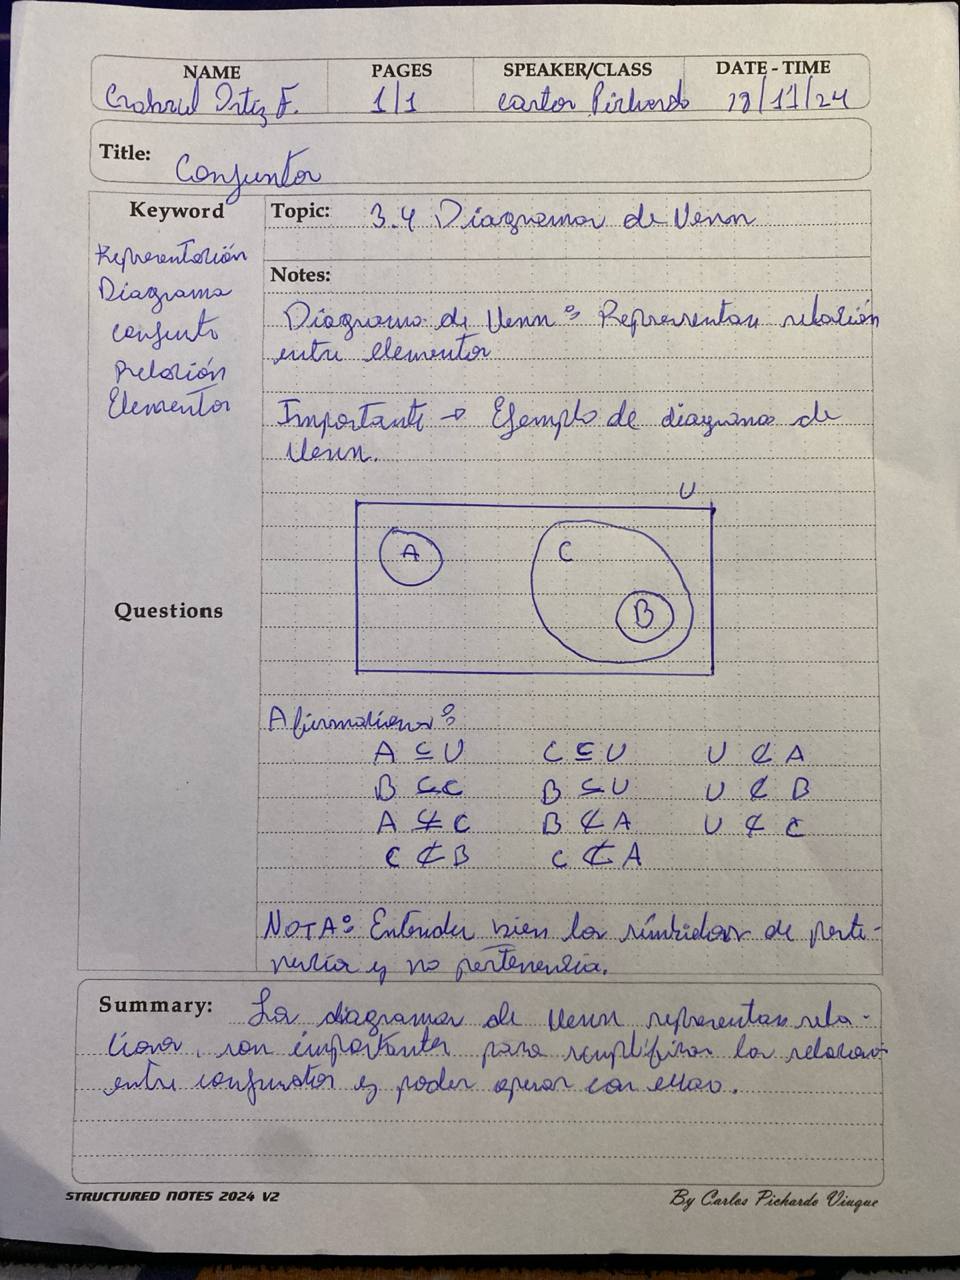 NAME PAGES SPEAKER/CLASS DATE - TIME
Ortiz F. 1/1 Carlos Pichardo /11/24
Title: Conjuntos
Keyword Topic: 3.4 Diagramas de Venn
Representación
Diagrama
conjunto
Relación
Elementos
Notes:
Diagrama de Venn: Representan relación
entre elementos
Importante → Ejemplo de diagrama de
Venn.
U
A C
B
Questions
Afirmaciones:
A ⊆ U C ⊆ U U ⊄ A
B ⊆ C B ⊆ U U ⊄ B
A ⊈ C B ⊄ A U ⊄ C
C ⊄ B C ⊄ A
NOTA: Entender bien los de perte-
nencia y no pertenencia.
Summary: Los diagramas de Venn representan rela-
ciones, son importantes para simplificar las relaciones
entre conjuntos y poder operar con ellos.
STRUCTURED NOTES 2024 V2 By Carlos Pichardo Viuque